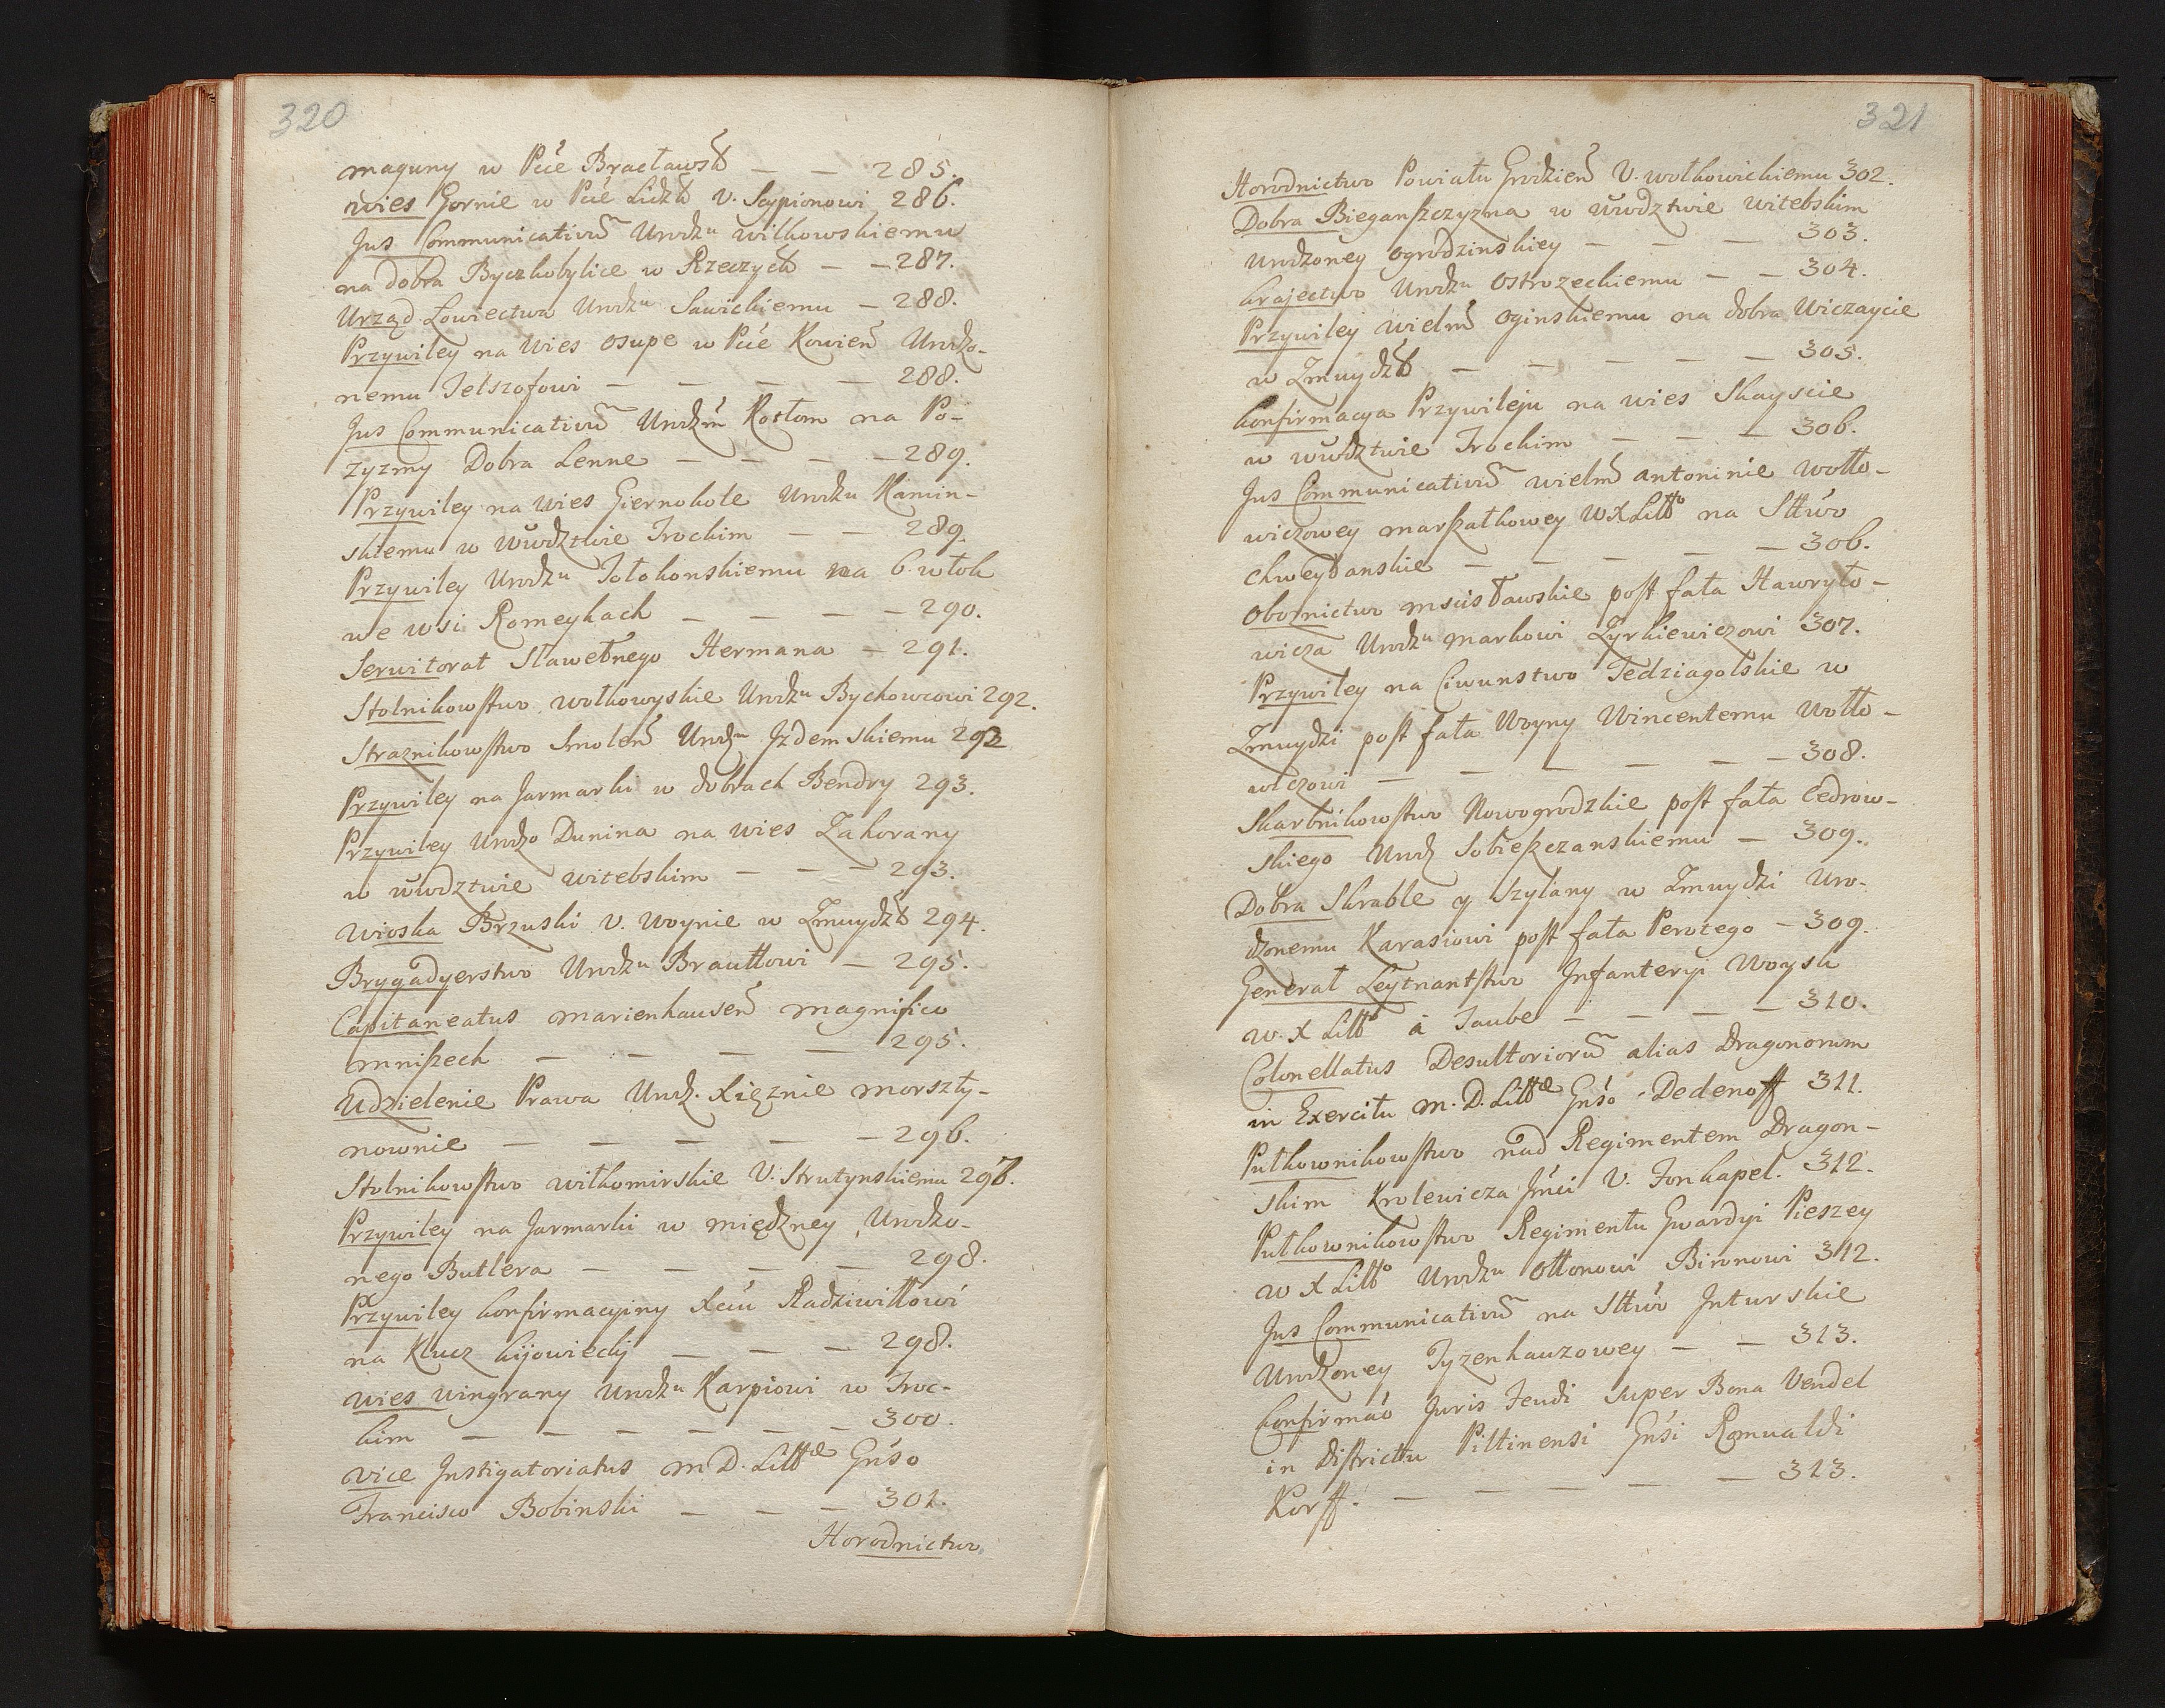 320
maguny w Pcie Bracławsk — — 285.
wies Gornie w Pcie Lidzk V. Scypionowi 286.
Jus Communicativū Urodzu Wilkowskiemu
na dobra Byczkobylice w Rzeczyck — — 287.
Urząd Łowiectwa Urodzu Sawickiemu — 288.
Przywiley na Wies Osupe w Pcie Kowień Urodzo-
nemu Jelszofowi — — — — 288.
Jus Communicativū Urodzm Kostom na Po-
zyzmy Dobra Lenne — — — — 289.
Przywiley na Wies Giernokole Urodzu Kamin-
skiemu w Wwdztwie Trockim — — 289.
Przywiley Urodzu Tołokonskiemu na 6. włok
we wsi Romeykach — — — — 290.
Serwitorat Sławetnego Hermana — 291.
Stolnikowstwo wołkowyskie Urodzu Bychowcowi 292.
Straznikowstwo Smoleń Urodzu Jzdemskiemu 292
Przywiley na Jarmarki w dobrach Bendry 293.
Przywiley Urodzo Dunina na wies Zakorany
w wwdztwie Witebskim — — — 293.
Wioska Brzuski V. Woynie w Zmuydzk 294.
Brygadyerstwo Urodzu Brauttowi — 295.
Capitaneatus Marienhauseñ Magnifico
Mniszech — — — — 295.
Udzielenie Prawa Urodz. Xięznie Morszty-
nownie — — — — — 296.
Stolnikowstwo wilkomirskie V. Strutynskiemu 297.
Przywiley na Jarmarki w Międzney Urodzo-
nego Butlera — — — — 298.
Przywiley konfirmacyiny Xciu Radziwiłłowi
na Klucz kijowiecki — — — 298.
Wies Wingrany Urodzu Karpiowi w Troc-
kim — — — — — — 300.
Vice Jnstigatoriatus M. D. Littæ Gnso
Francisco Bobinski — — — 301.
Horodnictwo
321
Horodnictwo Powiatu Grodzień V. Wołkowickiemu 302.
Dobra Bieganszczyzna w wwdztwie Witebskim
Urodzoney Ogrodzinskiey — — — 303.
krajectwo Urodzu Ostrozeckiemu — — 304.
Przywiley Wielm Oginskiemu na dobra Wiczaycie
w Zmuydzk — — — — — 305.
konfirmacya Przywileju na wies Skayscie
w wwdztwie Trockim — — — 306.
Jus Communicativū Wielm Antoninie Wołło-
wiczowey Marszałkowey W X Litto na Sttwo
Chweydanskie — — — — — 306.
Oboznictwo Mscisławskie post fata Hawryło-
wicza Urodzu Markowi Zyrkiewiczowi 307.
Przywiley na Ciwunstwo Tedziagolskie w
Zmuydzi post fata Woyny Wincentemu Wołło-
wiczowi — — — — — — 308.
Skarbnikowstwo Nowogrodzkie post fata Cedrow-
skiego Urodz Sobieszczanskiemu — 309.
Dobra Skrable y Szylany w Zmuydzi Uro-
dzonemu Karasiowi post fata Perotego — 309.
Generał Leytnantstwo Jnfanteryi Woysk
W. X Litto à Taube — — — — 310.
Colonellatus Desultoriorū alias Dragonorum
in Exercitu M. D. Littæ Gnso Dedenoff 311.
Pułkownikowstwo nad Regimentem Dragon-
skim Krolewicza Jmci V. Fonkapel. 312.
Pułkownikowstwo Regimentu Gwardyi Pieszey
W X Litto Urodzu Ottonowi Bironowi 312.
Jus Communicativū na Sttwo Jnturskie
Urodzoney Tyzenhauzowey — — 313.
Confirmao Juris Feudi super Bona Vendel
in districtu Piltinensi Gnsi Romualdi
Korff. — — — — — 313.